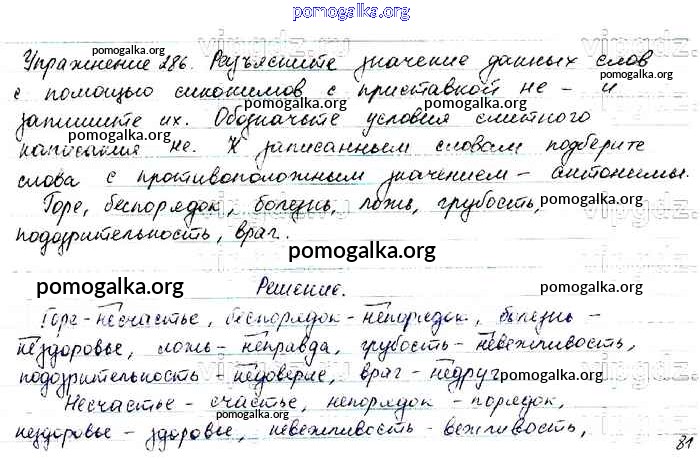 pomogalka.org
Упражнение 286. Разъясните значение данных слов
с помощью синонимов с приставкой не- и
запишите их. Обозначьте условия слитного
написания не. К записанным словам подберите
слова с противоположным значением - антонимы.
Горе, беспорядок, болезнь, ложь, грубость,
подозрительность, враг.
pomogalka.org
pomogalka.org Решение. pomogalka.org
Горе - несчастье, беспорядок - непорядок, болезнь -
нездоровье, ложь - неправда, грубость - невежливость,
подозрительность - недоверие, враг - недруг. pomogalka.org
Несчастье - счастье, непорядок - порядок,
нездоровье - здоровье, невежливость - вежливость,
81